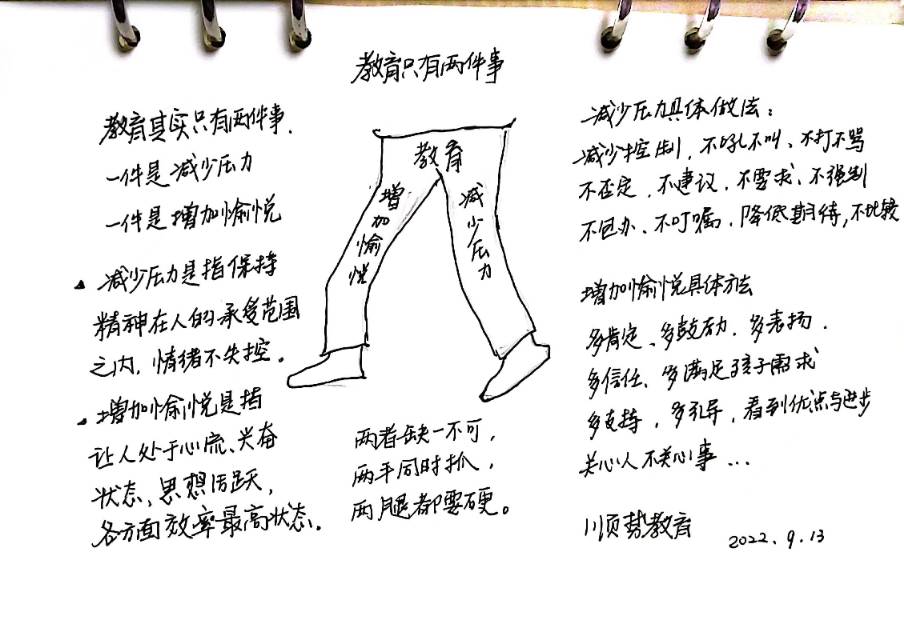 教育只有两件事
教育其实只有两件事.
一件是减少压力
一件是增加愉悦
减少压力是指保持
精神在人的承受范围
之内,情绪不失控。
增加愉悦是指
让人处于心流、兴奋
状态、思想活跃,
各方面效率最高状态.
教育
增加愉悦
减少压力
两者缺一不可,
两手同时抓,
两腿都要硬。
减少压力具体做法:
减少控制,不吼不叫、不打不骂
不否定、不建议、不要求、不强制
不包办、不叮嘱、降低期待,不比较
增加愉悦具体方法
多肯定、多鼓励、多表扬.
多信任、多满足孩子需求
多支持,多引导,看到优点与进步
关心人不关心事...
顺势教育
2022.9.13